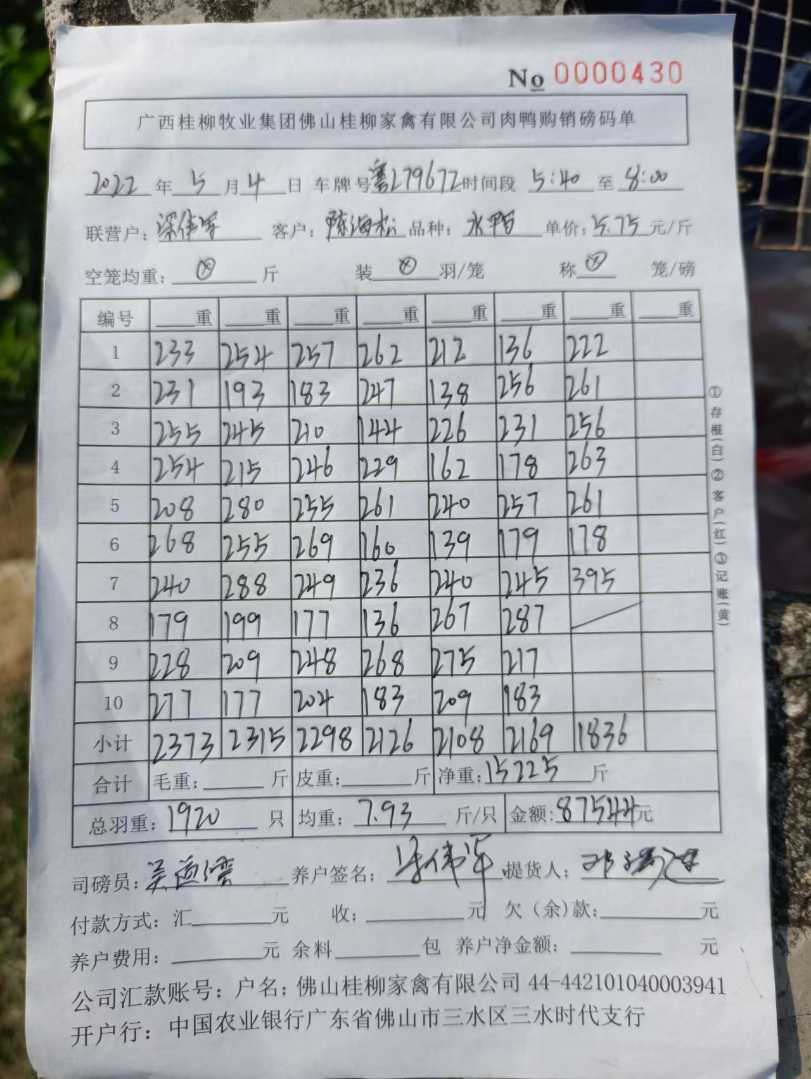 No 0000430
广西桂柳牧业集团佛山桂柳家禽有限公司肉鸭购销磅码单
2022 年 5 月 4 日 车牌号 粤L79672 时间段 5:40 至 8:00
联营户: 梁伟军 客户: 陈海松 品种: 水鸭 单价: 5.75 元/斤
空笼均重: ⊗ 斤 装 ⊗ 羽/笼 称 ⊗ 笼/磅
编号 重 重 重 重 重 重 重 重
1 233 254 257 262 212 136 222
2 231 193 183 247 138 256 261
3 255 245 210 144 226 231 256
4 254 215 246 229 162 178 263
5 208 280 255 261 240 257 261
6 268 255 269 160 139 179 178
7 240 288 249 236 240 245 395
8 179 199 177 136 267 287
9 228 209 248 268 275 217
10 277 177 204 183 209 183
小计 2373 2315 2298 2126 2108 2169 1836
合计 毛重: 斤 皮重: 斤 净重: 15225 斤
总羽重: 1920 只 均重: 7.93 斤/只 金额: 87544 元
司磅员: 吴 养户签名: 梁伟军 提货人:
付款方式: 汇 元 收: 元 欠(余)款: 元
养户费用: 元 余料 包 养户净金额: 元
公司汇款账号: 户名: 佛山桂柳家禽有限公司 44-442101040003941
开户行: 中国农业银行广东省佛山市三水区三水时代支行
①存根(白)②客户(红)③记账(黄)